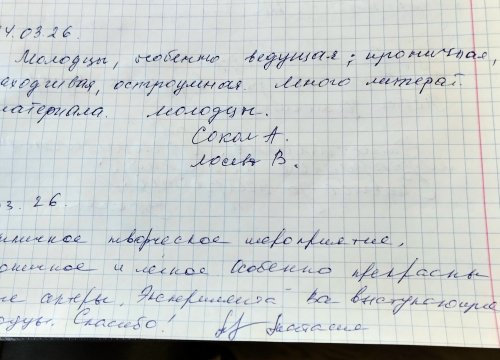 4.03.26.
Молодцы, особенно ведущая; ироничная,
еходчивая, остроумная. Много литерат.
материала. Молодцы.
Сокол А.
Лосев В.
03. 26.
личное творческое мероприятие,
и лёгкое Особенно прекрасны
ые актеры. Экспериментa выступающие
одцы. Спасибо! Анастасия